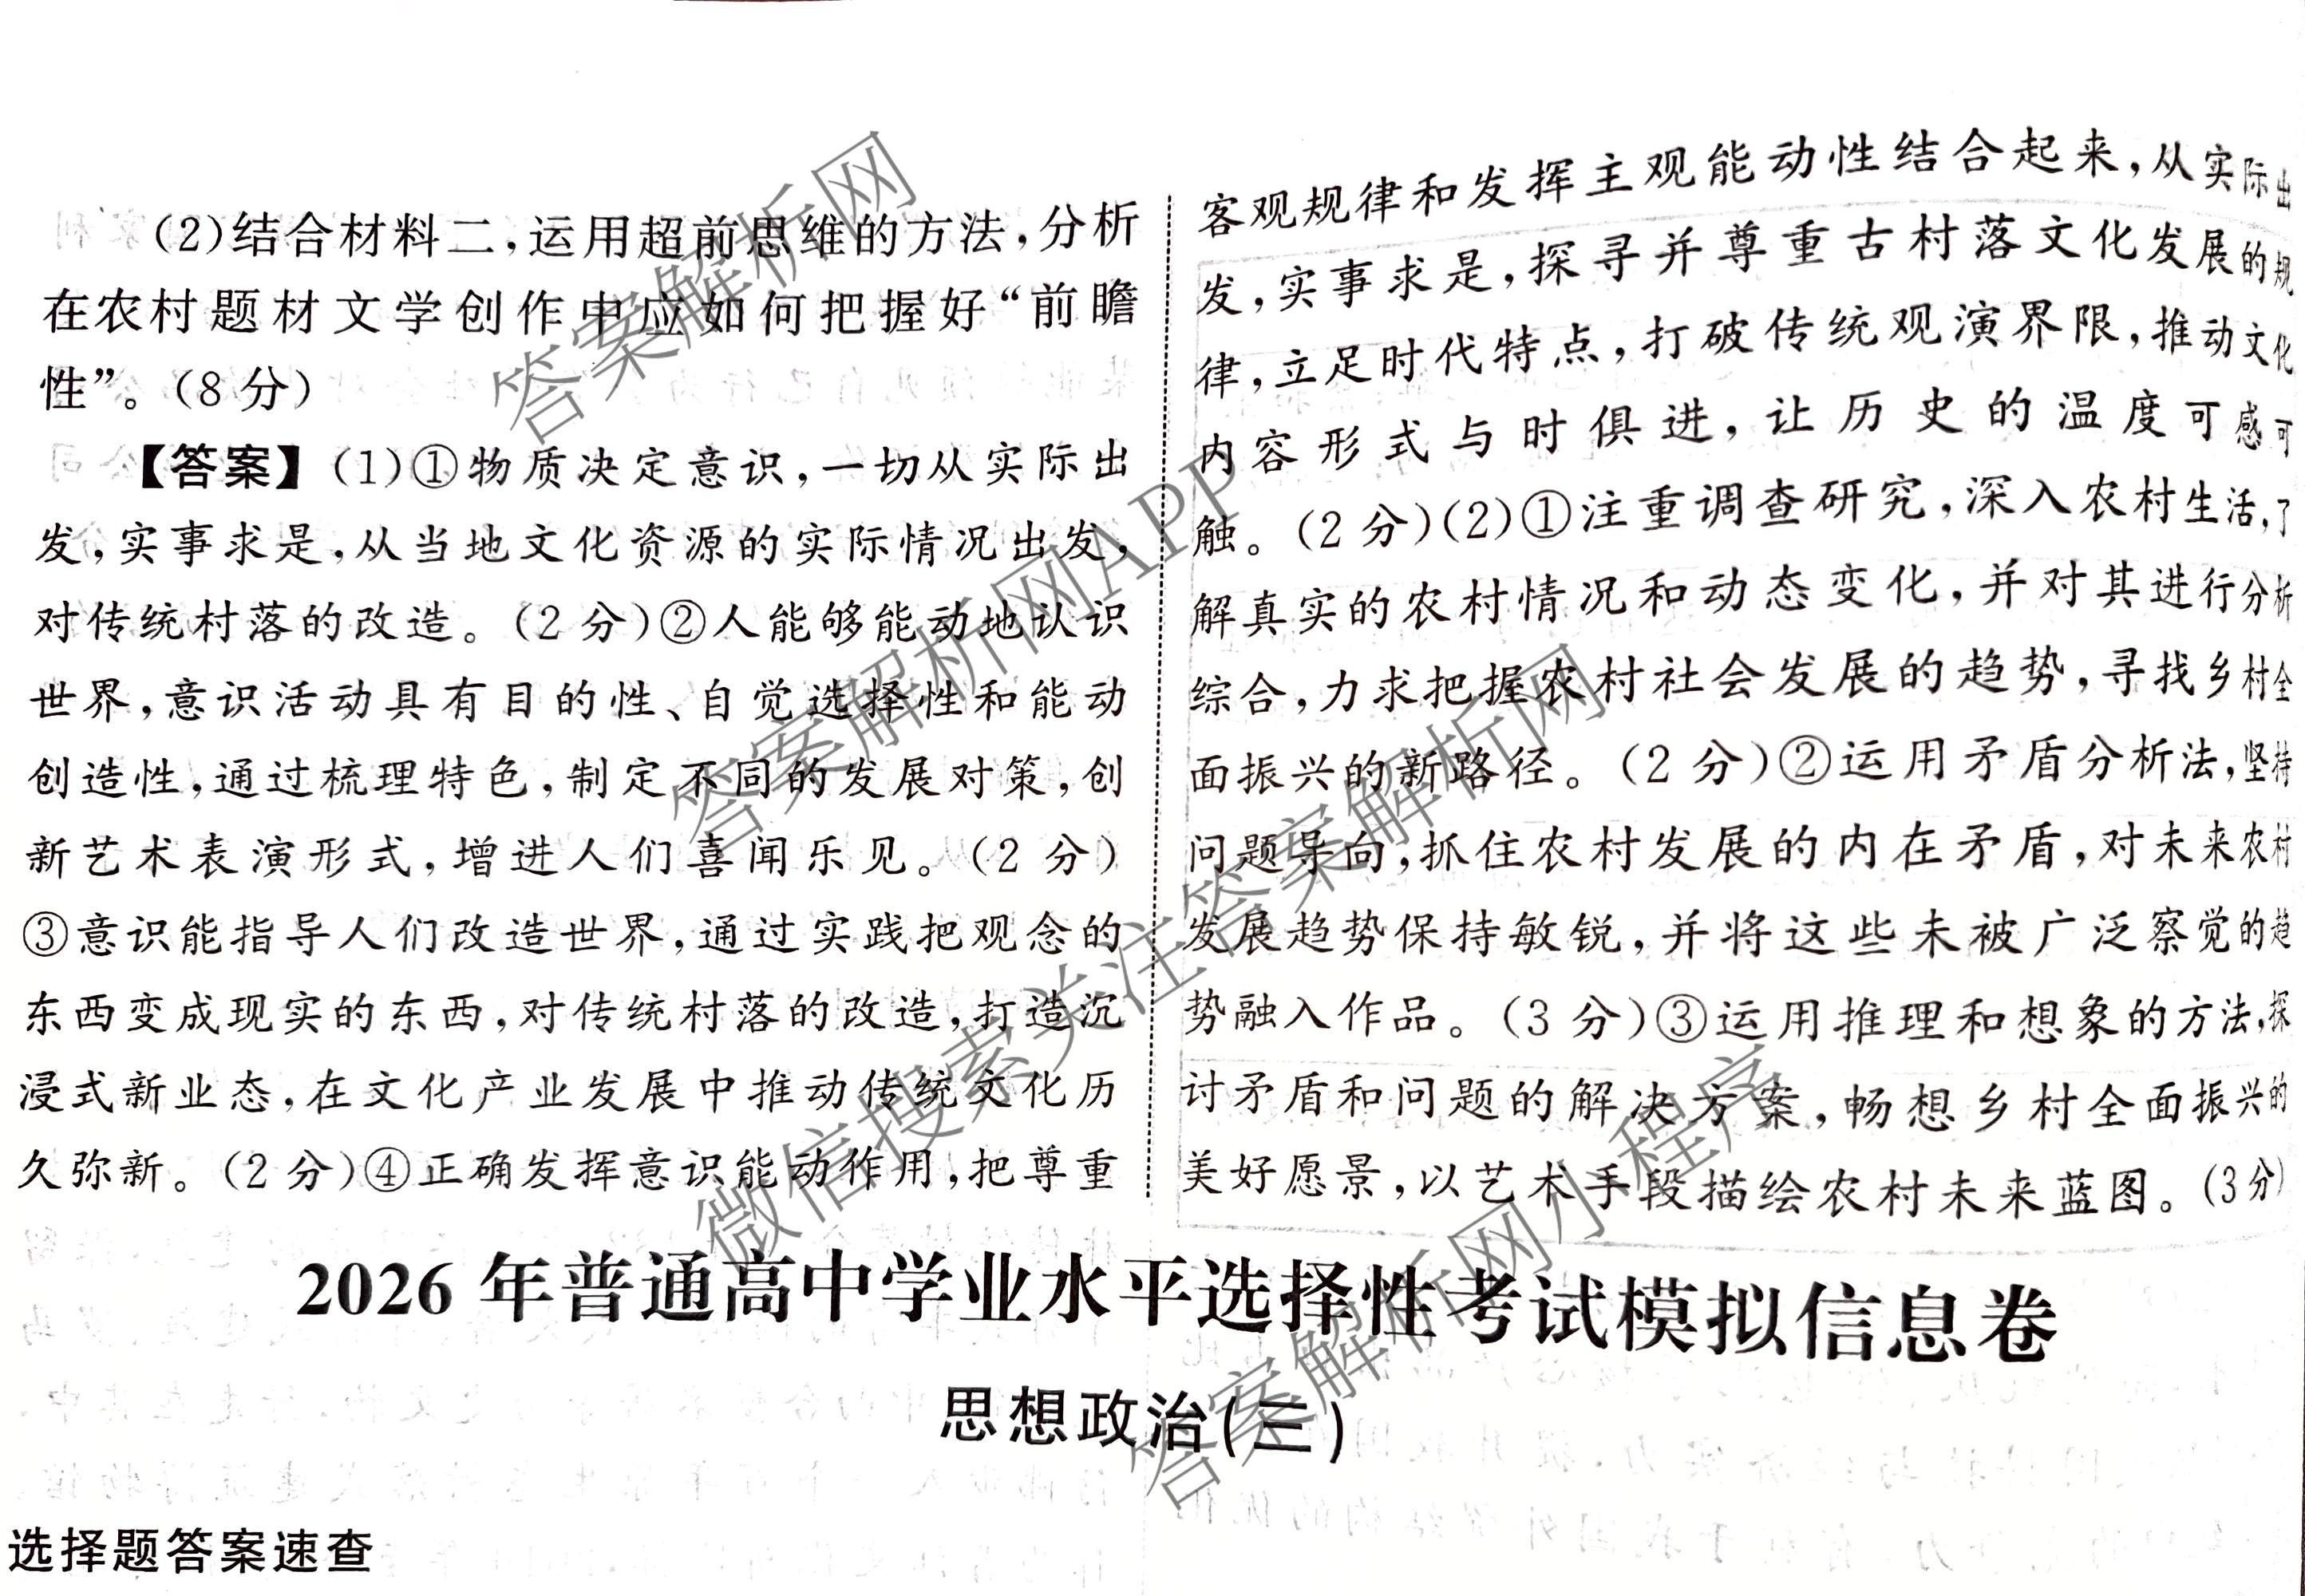 (2)结合材料二,运用超前思维的方法,分析
在农村题材文学创作中应如何把握好“前瞻
性”。(8分)
【答案】(1)①物质决定意识,一切从实际出
发,实事求是,从当地文化资源的实际情况出发,
对传统村落的改造。(2分)②人能够能动地认识
世界,意识活动具有目的性、自觉选择性和能动
创造性,通过梳理特色,制定不同的发展对策,创
新艺术表演形式,增进人们喜闻乐见。(2分)
③意识能指导人们改造世界,通过实践把观念的
东西变成现实的东西,对传统村落的改造,打造沉
浸式新业态,在文化产业发展中推动传统文化历
久弥新。(2分)④正确发挥意识能动作用,把尊重
客观规律和发挥主观能动性结合起来,从实际出
发,实事求是,探寻并尊重古村落文化发展的规
律,立足时代特点,打破传统观演界限,推动文化
内容形式与时俱进,让历史的温度可感可
触。(2分)(2)①注重调查研究,深入农村生活,了
解真实的农村情况和动态变化,并对其进行分析
综合,力求把握农村社会发展的趋势,寻找乡村全
面振兴的新路径。(2分)②运用矛盾分析法,坚持
问题导向,抓住农村发展的内在矛盾,对未来农村
发展趋势保持敏锐,并将这些未被广泛察觉的趋
势融入作品。(3分)③运用推理和想象的方法,探
讨矛盾和问题的解决方案,畅想乡村全面振兴的
美好愿景,以艺术手段描绘农村未来蓝图。(3分)
2026年普通高中学业水平选择性考试模拟信息卷
思想政治(三)
选择题答案速查
答案解析网
答案解析网APP
微信搜索关注答案解析网
答案解析网小程序